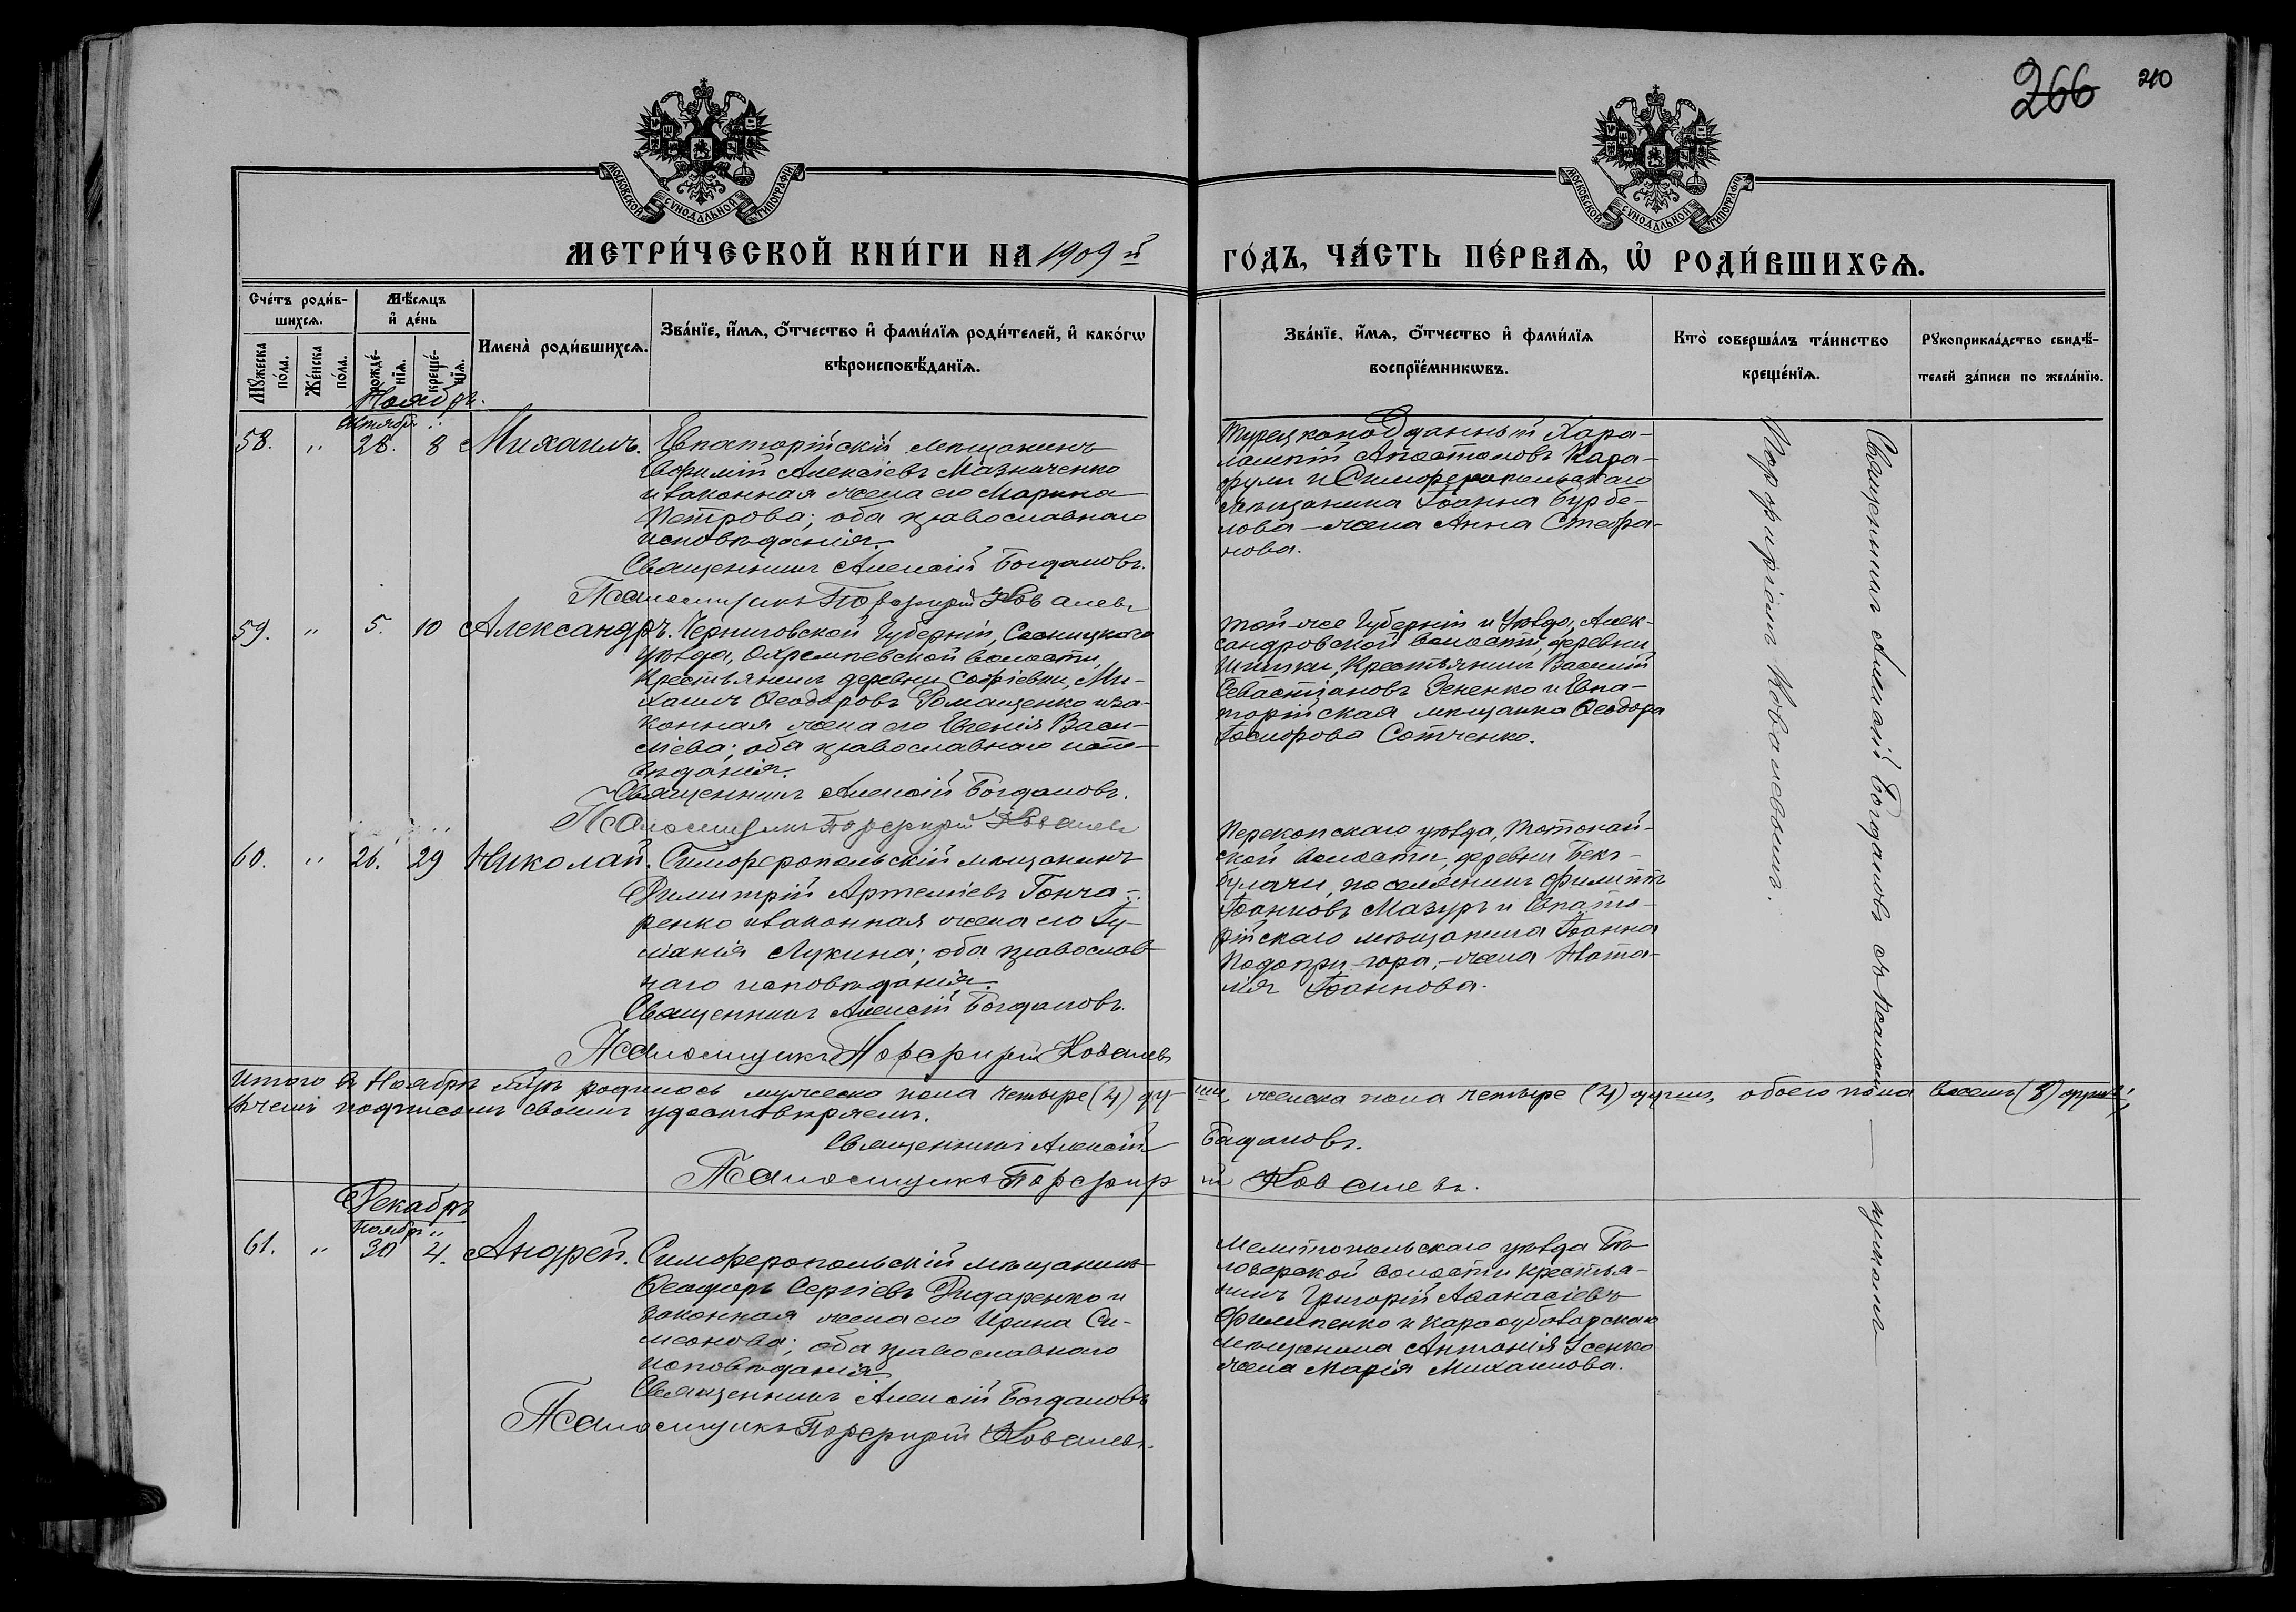 266 210
МОСКОВСКОЙ СУНОДАЛЬНОЙ ТИПОГРАФІИ
МОСКОВСКОЙ СУНОДАЛЬНОЙ ТИПОГРАФІИ
МЕТРИ́ЧЕСКОЙ КНИ́ГИ НА 1909 й
ГО́ДЪ, ЧА́СТЬ ПЕ́РВАѦ, Ѡ҆ РОДИ́ВШИХСѦ.
Сче́тъ роди́в-
шихсѧ.
Мꙋ́жеска по́ла.
Же́нска по́ла.
Мѣ́сѧцъ и҆ де́нь
рожде́-
нїѧ.
креще́-
нїѧ.
Имена̀ роди́вшихсѧ.
Зва́нїе, и҆́мѧ, ѻ҆́тчество и҆ фами́лїѧ роди́телей, и҆ како́гѡ
вѣроисповѣ́данїѧ.
Зва́нїе, и҆́мѧ, ѻ҆́тчество и҆ фами́лїѧ
воспрїе́мникѡвъ.
Кто̀ соверша́лъ та́инство
креще́нїѧ.
Рꙋкоприкла́дство свидѣ́-
телей за́писи по жела́нїю.
Ноябрь.
Октябр.
58. " 28. 8 Михаилъ. Евпаторійскій мѣщанинъ
Евфимій Алексіевъ Мазниченко
и законная жена его Марина
Петрова; оба православнаго
исповѣданія.
Священникъ Алексій Богдановъ.
Псаломщикъ Порфирій Ковалевъ
Турецкоподданный Хара-
лампій Апостоловъ Кара-
фули и Симферопольскаго
мѣщанина Іоанна Бурбе-
лова – жена Анна Стефа-
нова.
59. " 5. 10 Александръ. Черниговской Губерніи, Сосницкого
уѣзда, Охрамѣевской волости,
Крестьянинъ деревни Софіевки, Ми-
хаилъ Ѳеодоровъ Ромащенко и за-
конная жена его Евгенія Васи-
ліева; оба православнаго испо-
вѣданія.
Священникъ Алексій Богдановъ.
Псаломщикъ Порфирій Ковалевъ
той-же Губерніи и Уѣзда, Алек-
сандровской волости, деревни
Крестьянинъ Василій
Севастіановъ Зененко и Евпа-
торійская мѣщанка Ѳеодора
Сотченко.
60. " 26. 29 Николай. Симферопольскій мѣщанинъ
Димитрій Артеміевъ Гонча-
ренко и законная жена его Іу-
ліанія Лукина; оба православ-
наго исповѣданія.
Священникъ Алексій Богдановъ.
Псаломщикъ Порфирій Ковалевъ
Перекопскаго уѣзда, Тотонай-
ской волости, деревни Бекъ-
булачи, поселянинъ Филиппъ
Іоанновъ Мазуръ и Евпато-
рійскаго мѣщанина Іоанна
Подопри-гора, – жена Ната-
лія Іоаннова.
Священникъ Алексій Богдановъ съ Псаломщ – икомъ –
Порфиріемъ Ковалевымъ.
Итого въ Ноябрѣ мцѣ родилось мужеска пола четыре (4) ду-
ши, женска пола четыре (4) души, обоего пола восемь (8) душъ,
въ чемъ подписомъ своимъ удостовѣряемъ.
Священникъ Алексій Богдановъ.
Псаломщикъ Порфирій Ковалевъ.
Декабрь
Ноябр.
61. " 30 4. Андрей. Симферопольскій мѣщанинъ
Ѳеодоръ Сергіевъ Дидаренко и
законная жена его Ирина Си-
меонова; оба православнаго
исповѣданія.
Священникъ Алексій Богдановъ
Псаломщикъ Порфирій Ковалевъ.
Мелитопольскаго уѣзда Бѣ-
лозерской волости крестья-
нинъ Григорій Аѳанасіевъ
Филипенко и Карасубазарскаго
мѣщанина Антонія Усенко
жена Марія Михаилова.